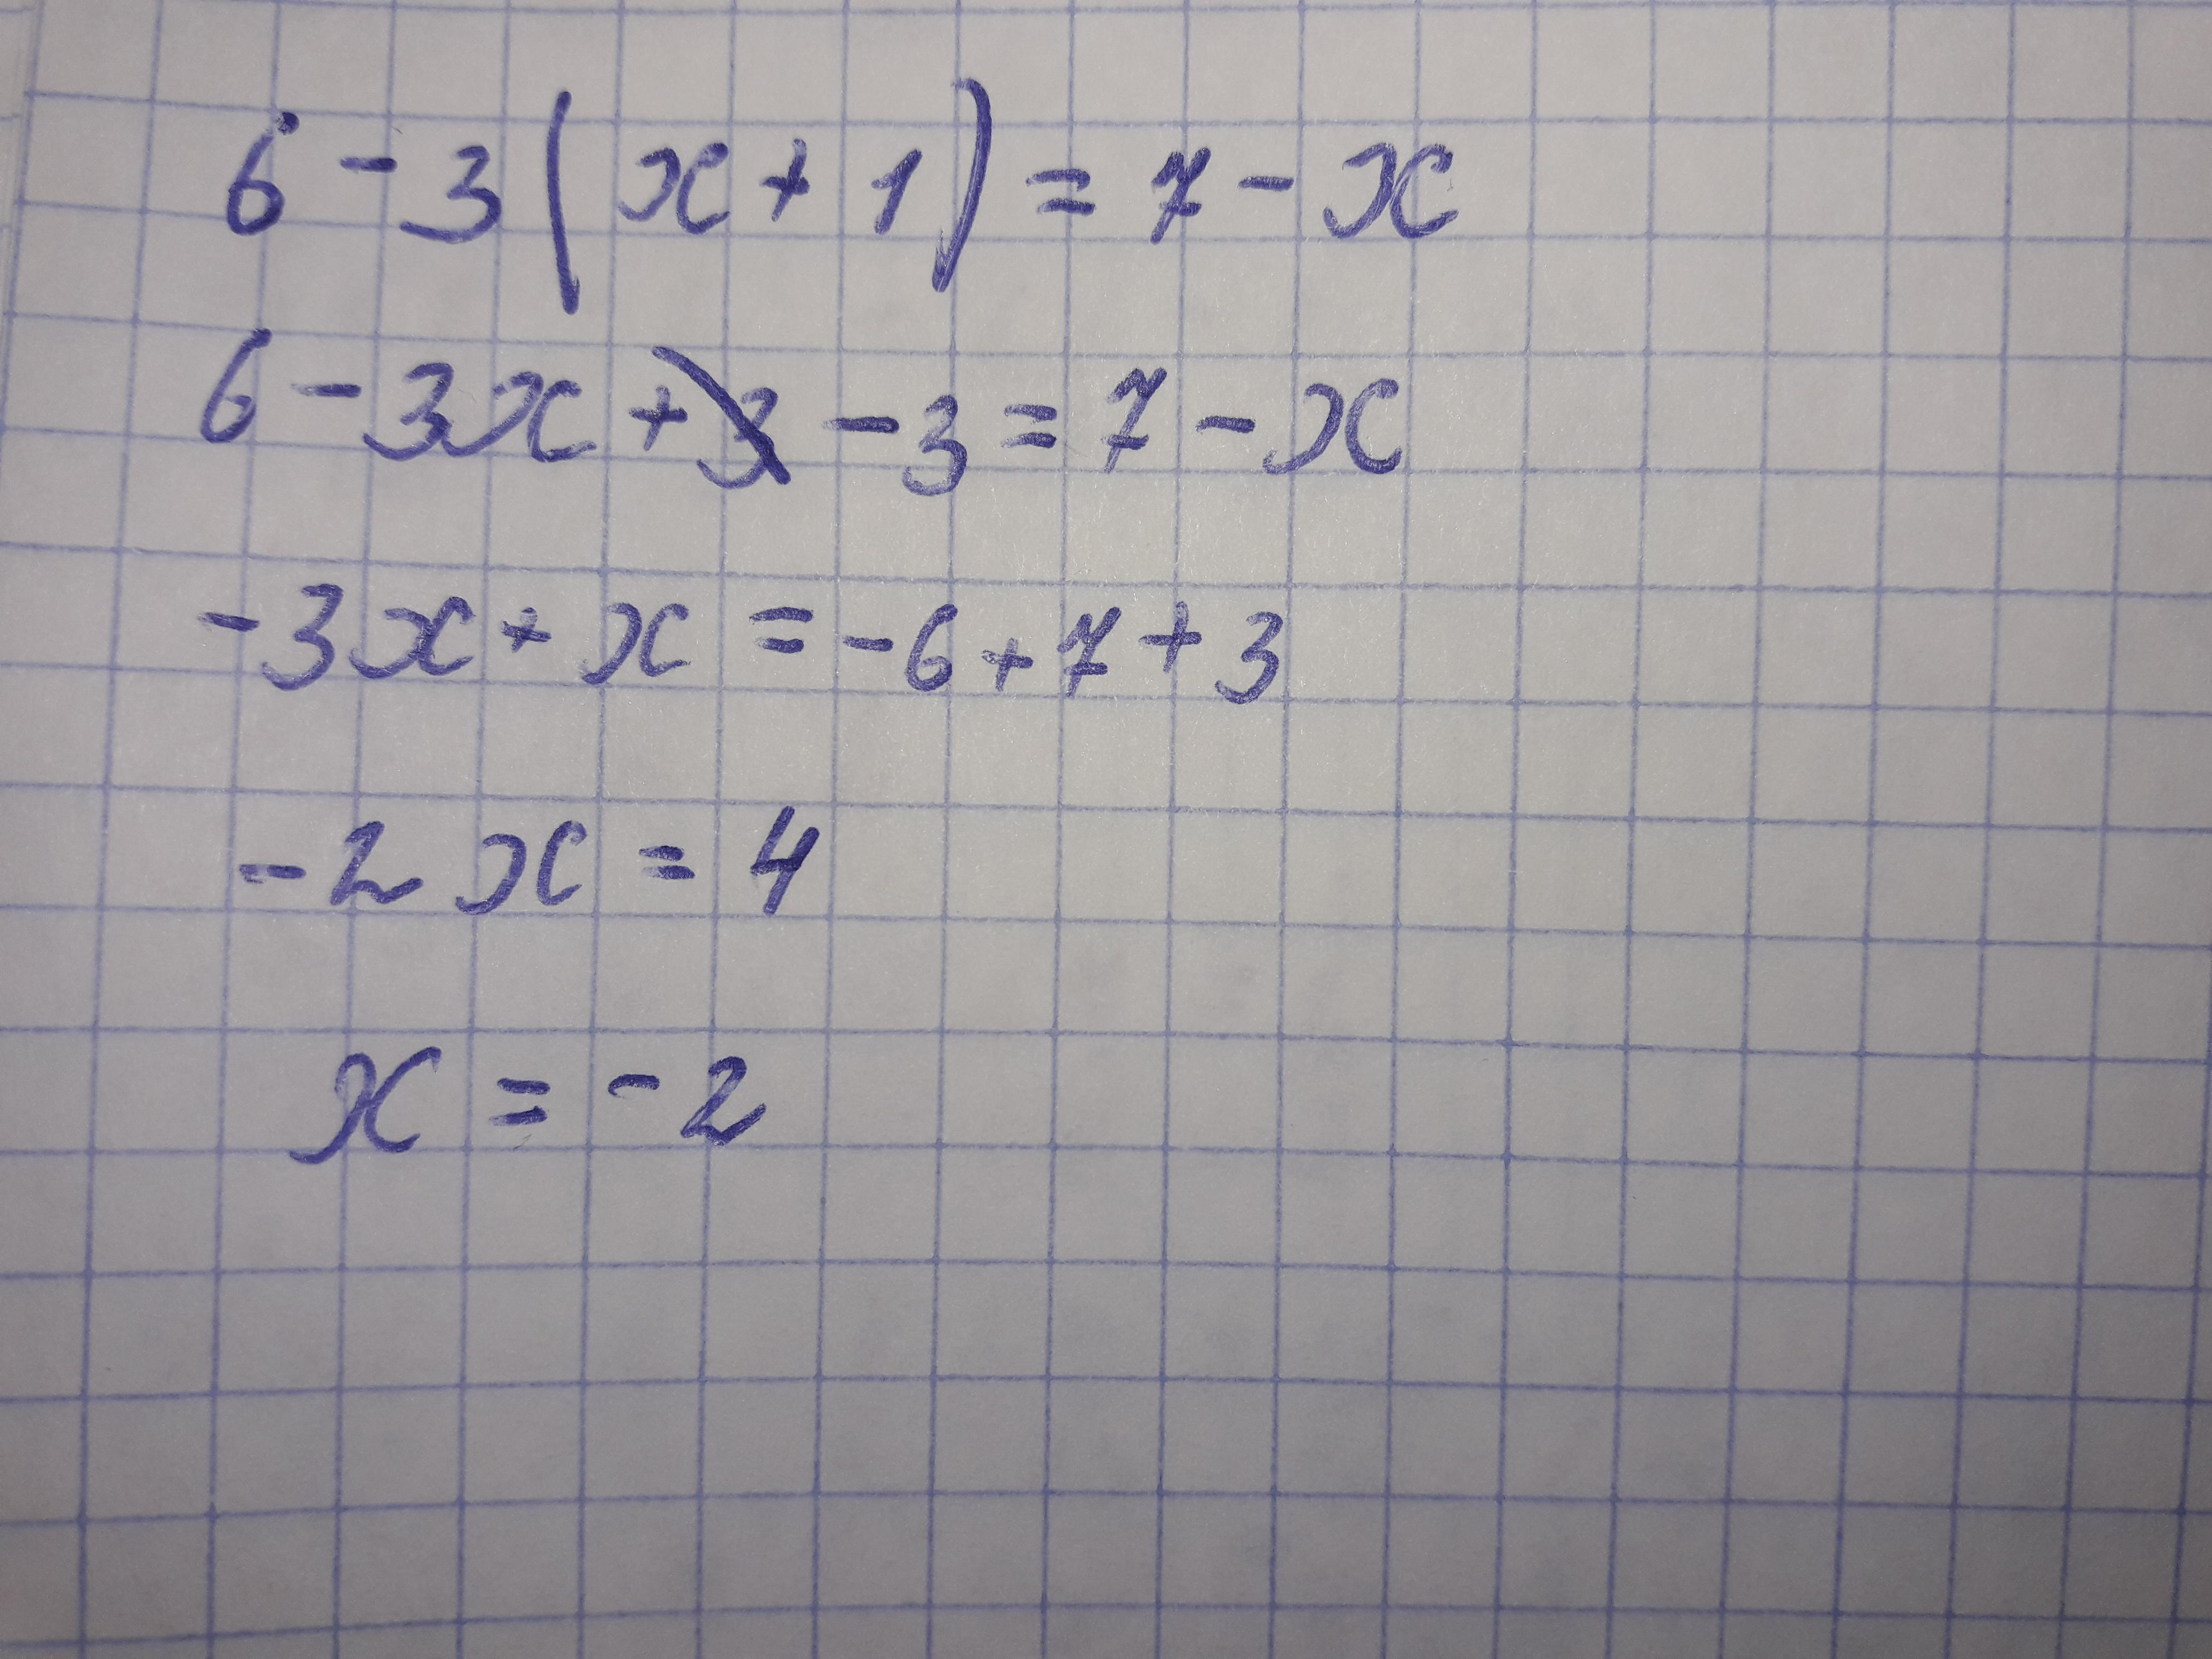 6 - 3 ( x + 1 ) = 7 - x
6 - 3x + 3 - 3 = 7 - x
- 3x + x = - 6 + 7 + 3
- 2x = 4
x = - 2